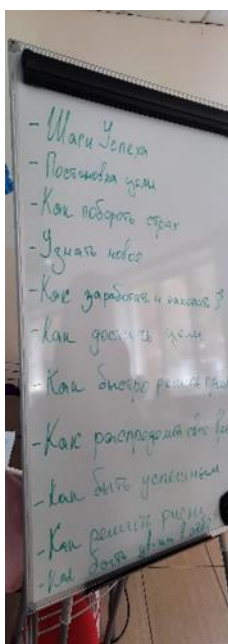 - Шаги Успеха
- Постановка цели
- Как побороть страх
- Узнать новое
- Как заработать и
- Как достичь цели
- Как быстро решить
- Как распределить своё
- Как быть успешным
- Как решить
- Как быть